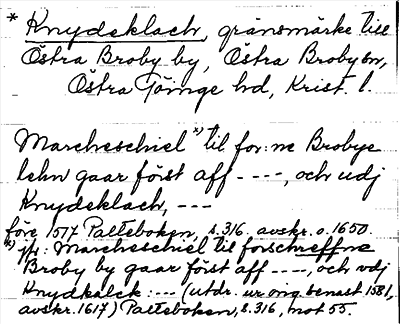 * Knydeklack, gränsmärke till
Östra Broby by, Östra Broby sn,
Östra Göinge hd, Krist. l.
Marcheschiel *) til for:ne Brobye
lehn gaar först aff ----, och udj
Knydeklach, ---
före 1517 Palteboken, s.316. avskr. o. 1650.
*) jfr: Marcheschiel til forschreffne
Broby by gaar först aff ----, och vdj
Knydkalck: --- (utdr. ur orig. senast 1581,
avskr. 1617) Palteboken, s.316, not 55.